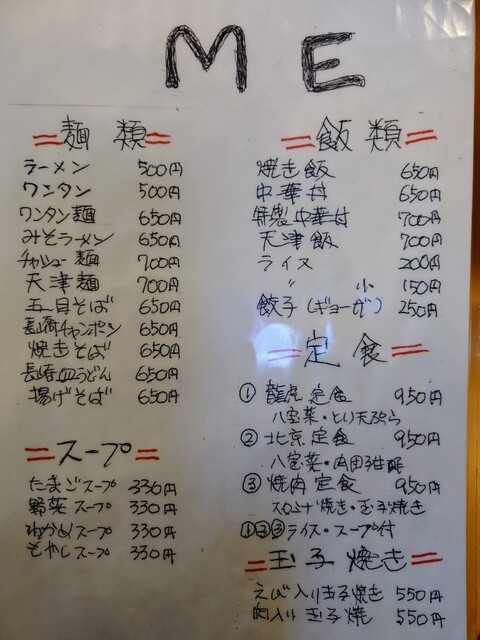 ME
麺類
ラーメン 500円
ワンタン 500円
ワンタン麺 650円
みそラーメン 650円
チャシュー麺 700円
天津麺 700円
五目そば 650円
長崎チャンポン 650円
焼きそば 650円
長崎皿うどん 650円
揚げそば 650円
スープ
たまごスープ 330円
野菜スープ 330円
わかめスープ 330円
もやしスープ 330円
飯類
焼き飯 650円
中華丼 650円
特製中華丼 700円
天津飯 700円
ライス 200円
〃 小 150円
餃子(ギョーザ) 250円
定食
① 龍虎定食 950円
八宝菜・とり天ぷら
② 北京定食 950円
八宝菜・肉団子甘酢
③ 焼肉定食 950円
スタミナ焼き・玉子焼き
①②③ライス・スープ付
玉子焼き
えび入り玉子焼き 550円
肉入り玉子焼 550円